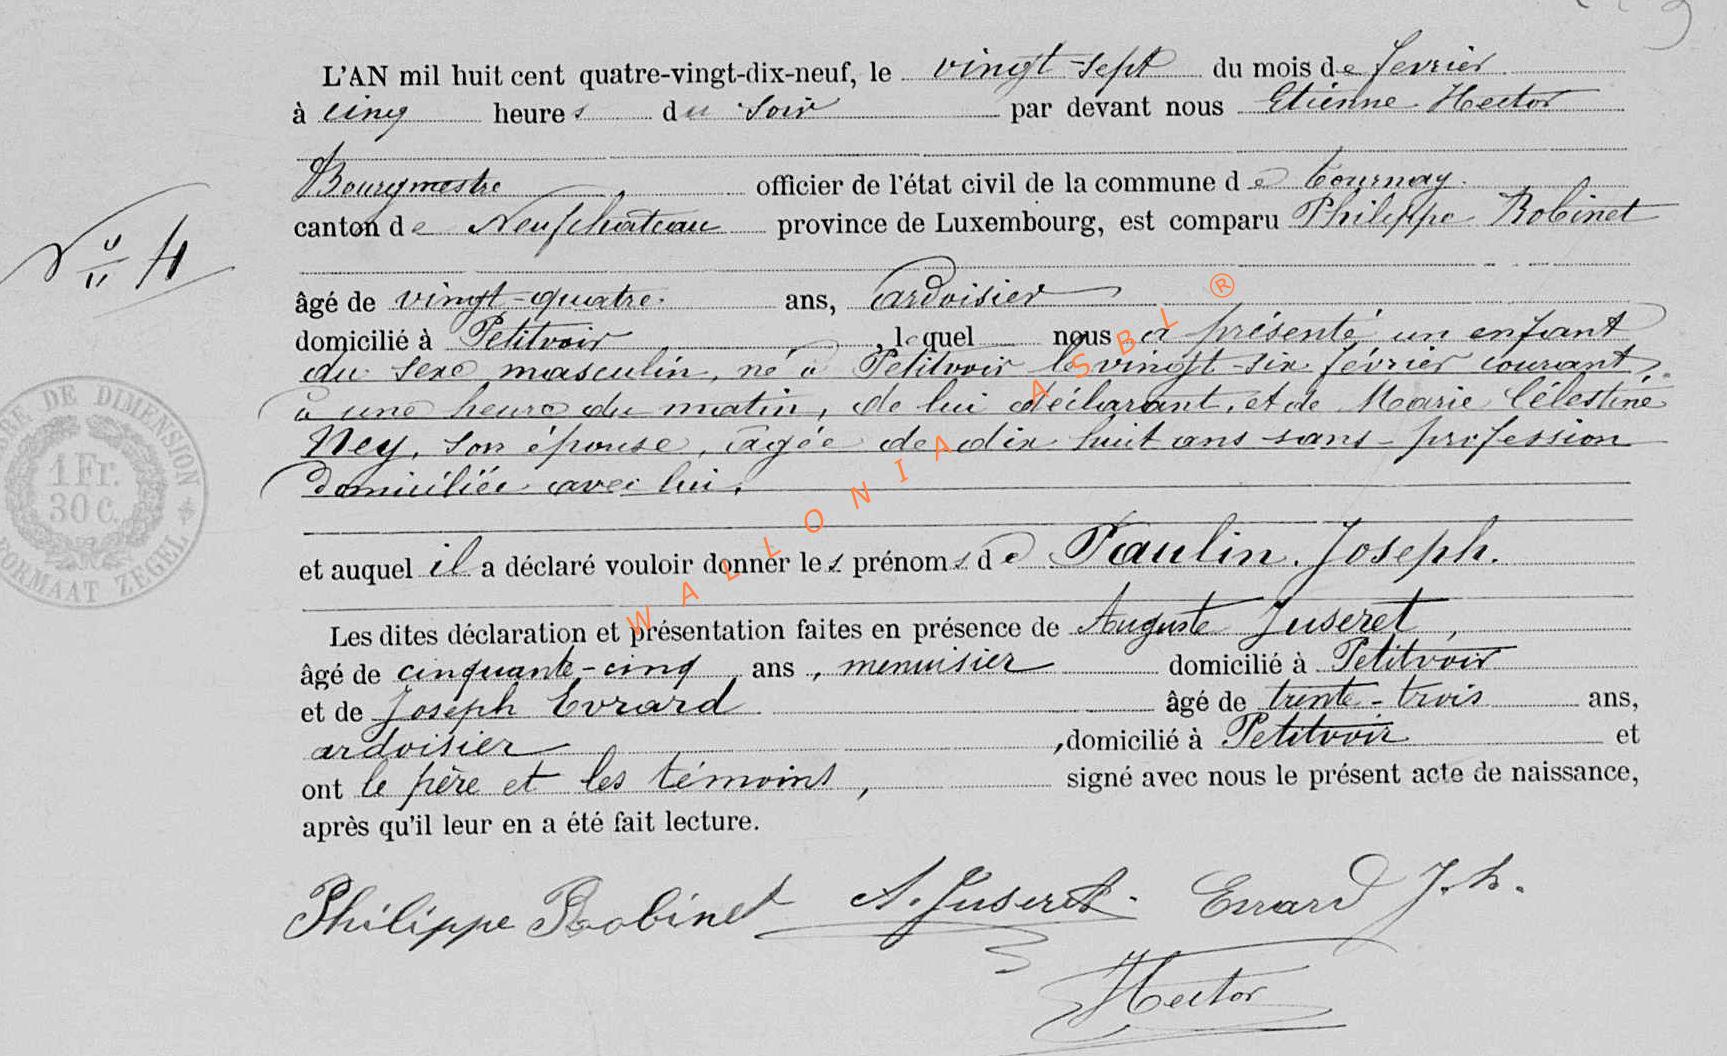 L'AN mil huit cent quatre-vingt-dix-neuf, le vingt-sept du mois de février
à cinq heures du soir par devant nous Etienne Hector
Bourgmestre officier de l'état civil de la commune de Tournay.
canton de Neufchâteau province de Luxembourg, est comparu Philippe Robinet
N° 4
âgé de vingt-quatre ans, ardoisier
domicilié à Petitvoir, lequel nous a présenté un enfant
du sexe masculin, né à Petitvoir le vingt-six février courant
à une heure du matin, de lui déclarant, et de Marie Célestine
Ney, son épouse, âgée de dix huit ans sans profession
domiciliée avec lui.
et auquel il a déclaré vouloir donner les prénoms de Paulin Joseph.
Les dites déclaration et présentation faites en présence de Auguste Juseret,
âgé de cinquante-cinq ans, menuisier domicilié à Petitvoir
et de Joseph Evrard âgé de trente-trois ans,
ardoisier, domicilié à Petitvoir et
ont le père et les témoins, signé avec nous le présent acte de naissance,
après qu'il leur en a été fait lecture.
Philippe Robinet A. Juseret. Evrard J.h.
Hector
DE DIMENSION
1 Fr.
30 C.
FORMAAT ZEGEL
WALLONIA ASBL ®